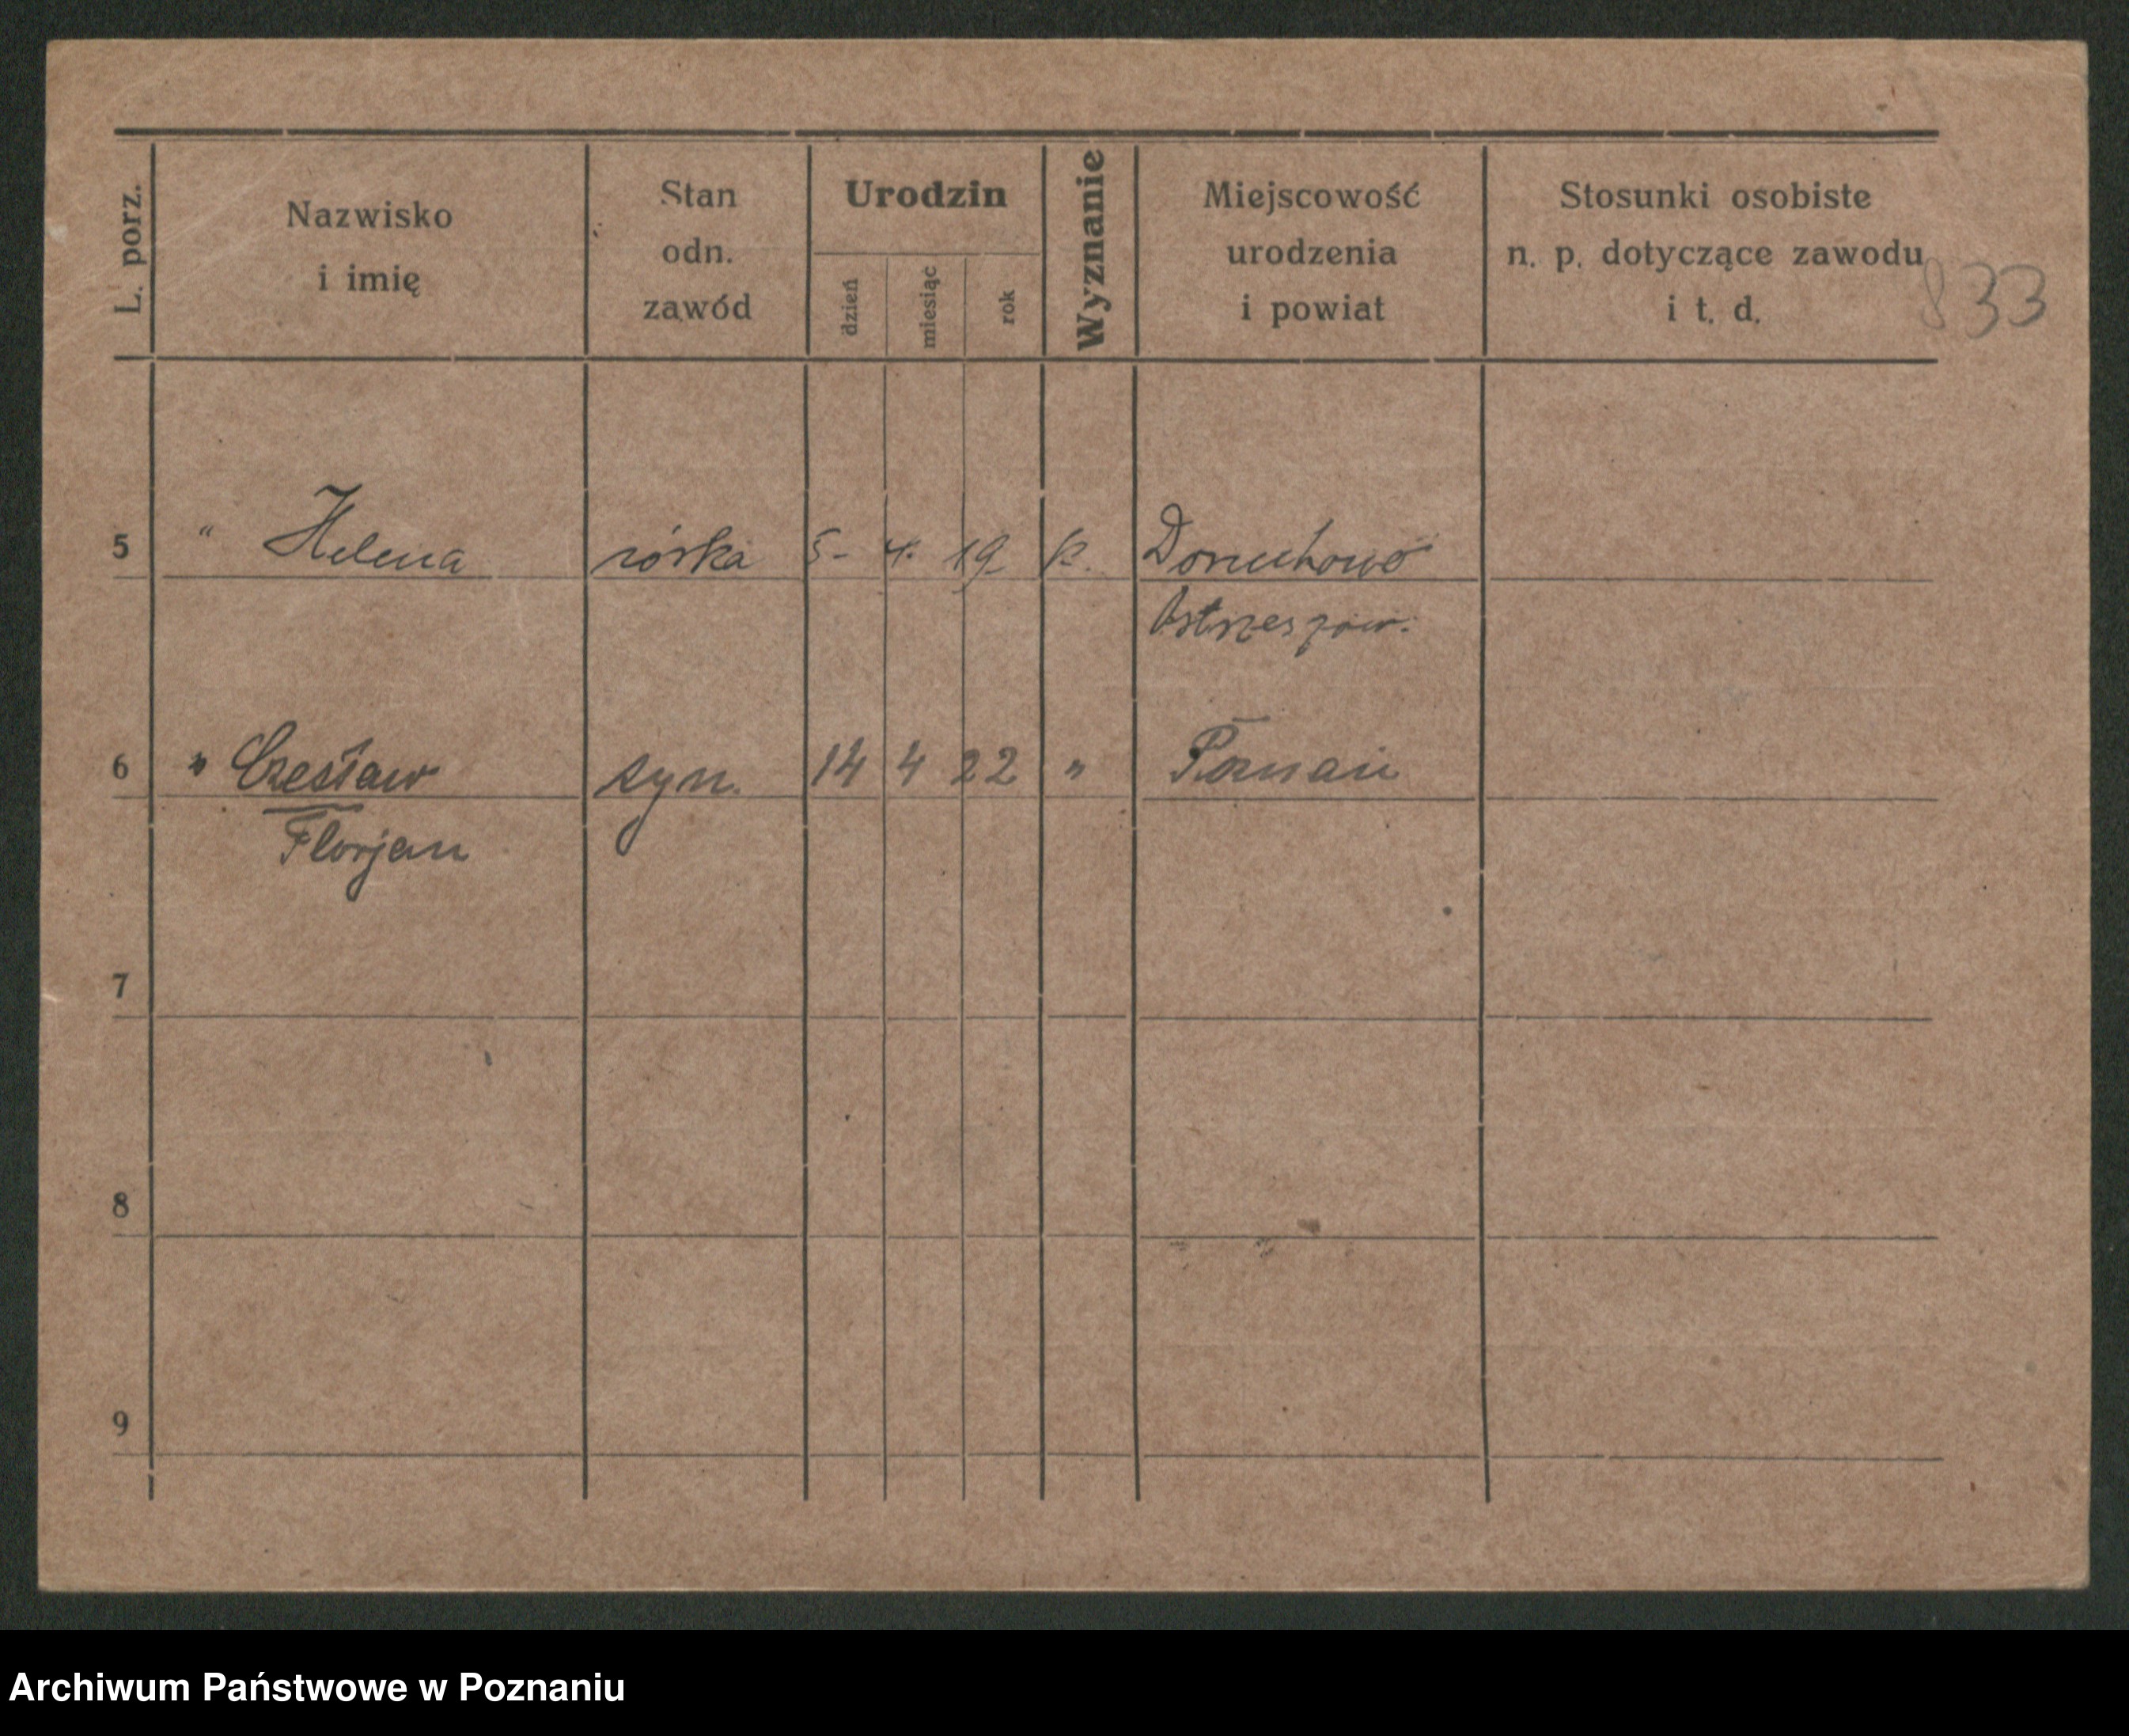 L. porz.
Nazwisko
i imię
Stan
odn.
zawód
Urodzin
dzień
miesiąc
rok
Wyznanie
Miejscowość
urodzenia
i powiat
Stosunki osobiste
n. p. dotyczące zawodu
i t. d.
833
5 " Helena córka 5- 4. 19 k.
Ostrzeszów.
6 " Czesław syn. 14 4 22 " Poznań
Florjan
7
8
9
Archiwum Państwowe w Poznaniu